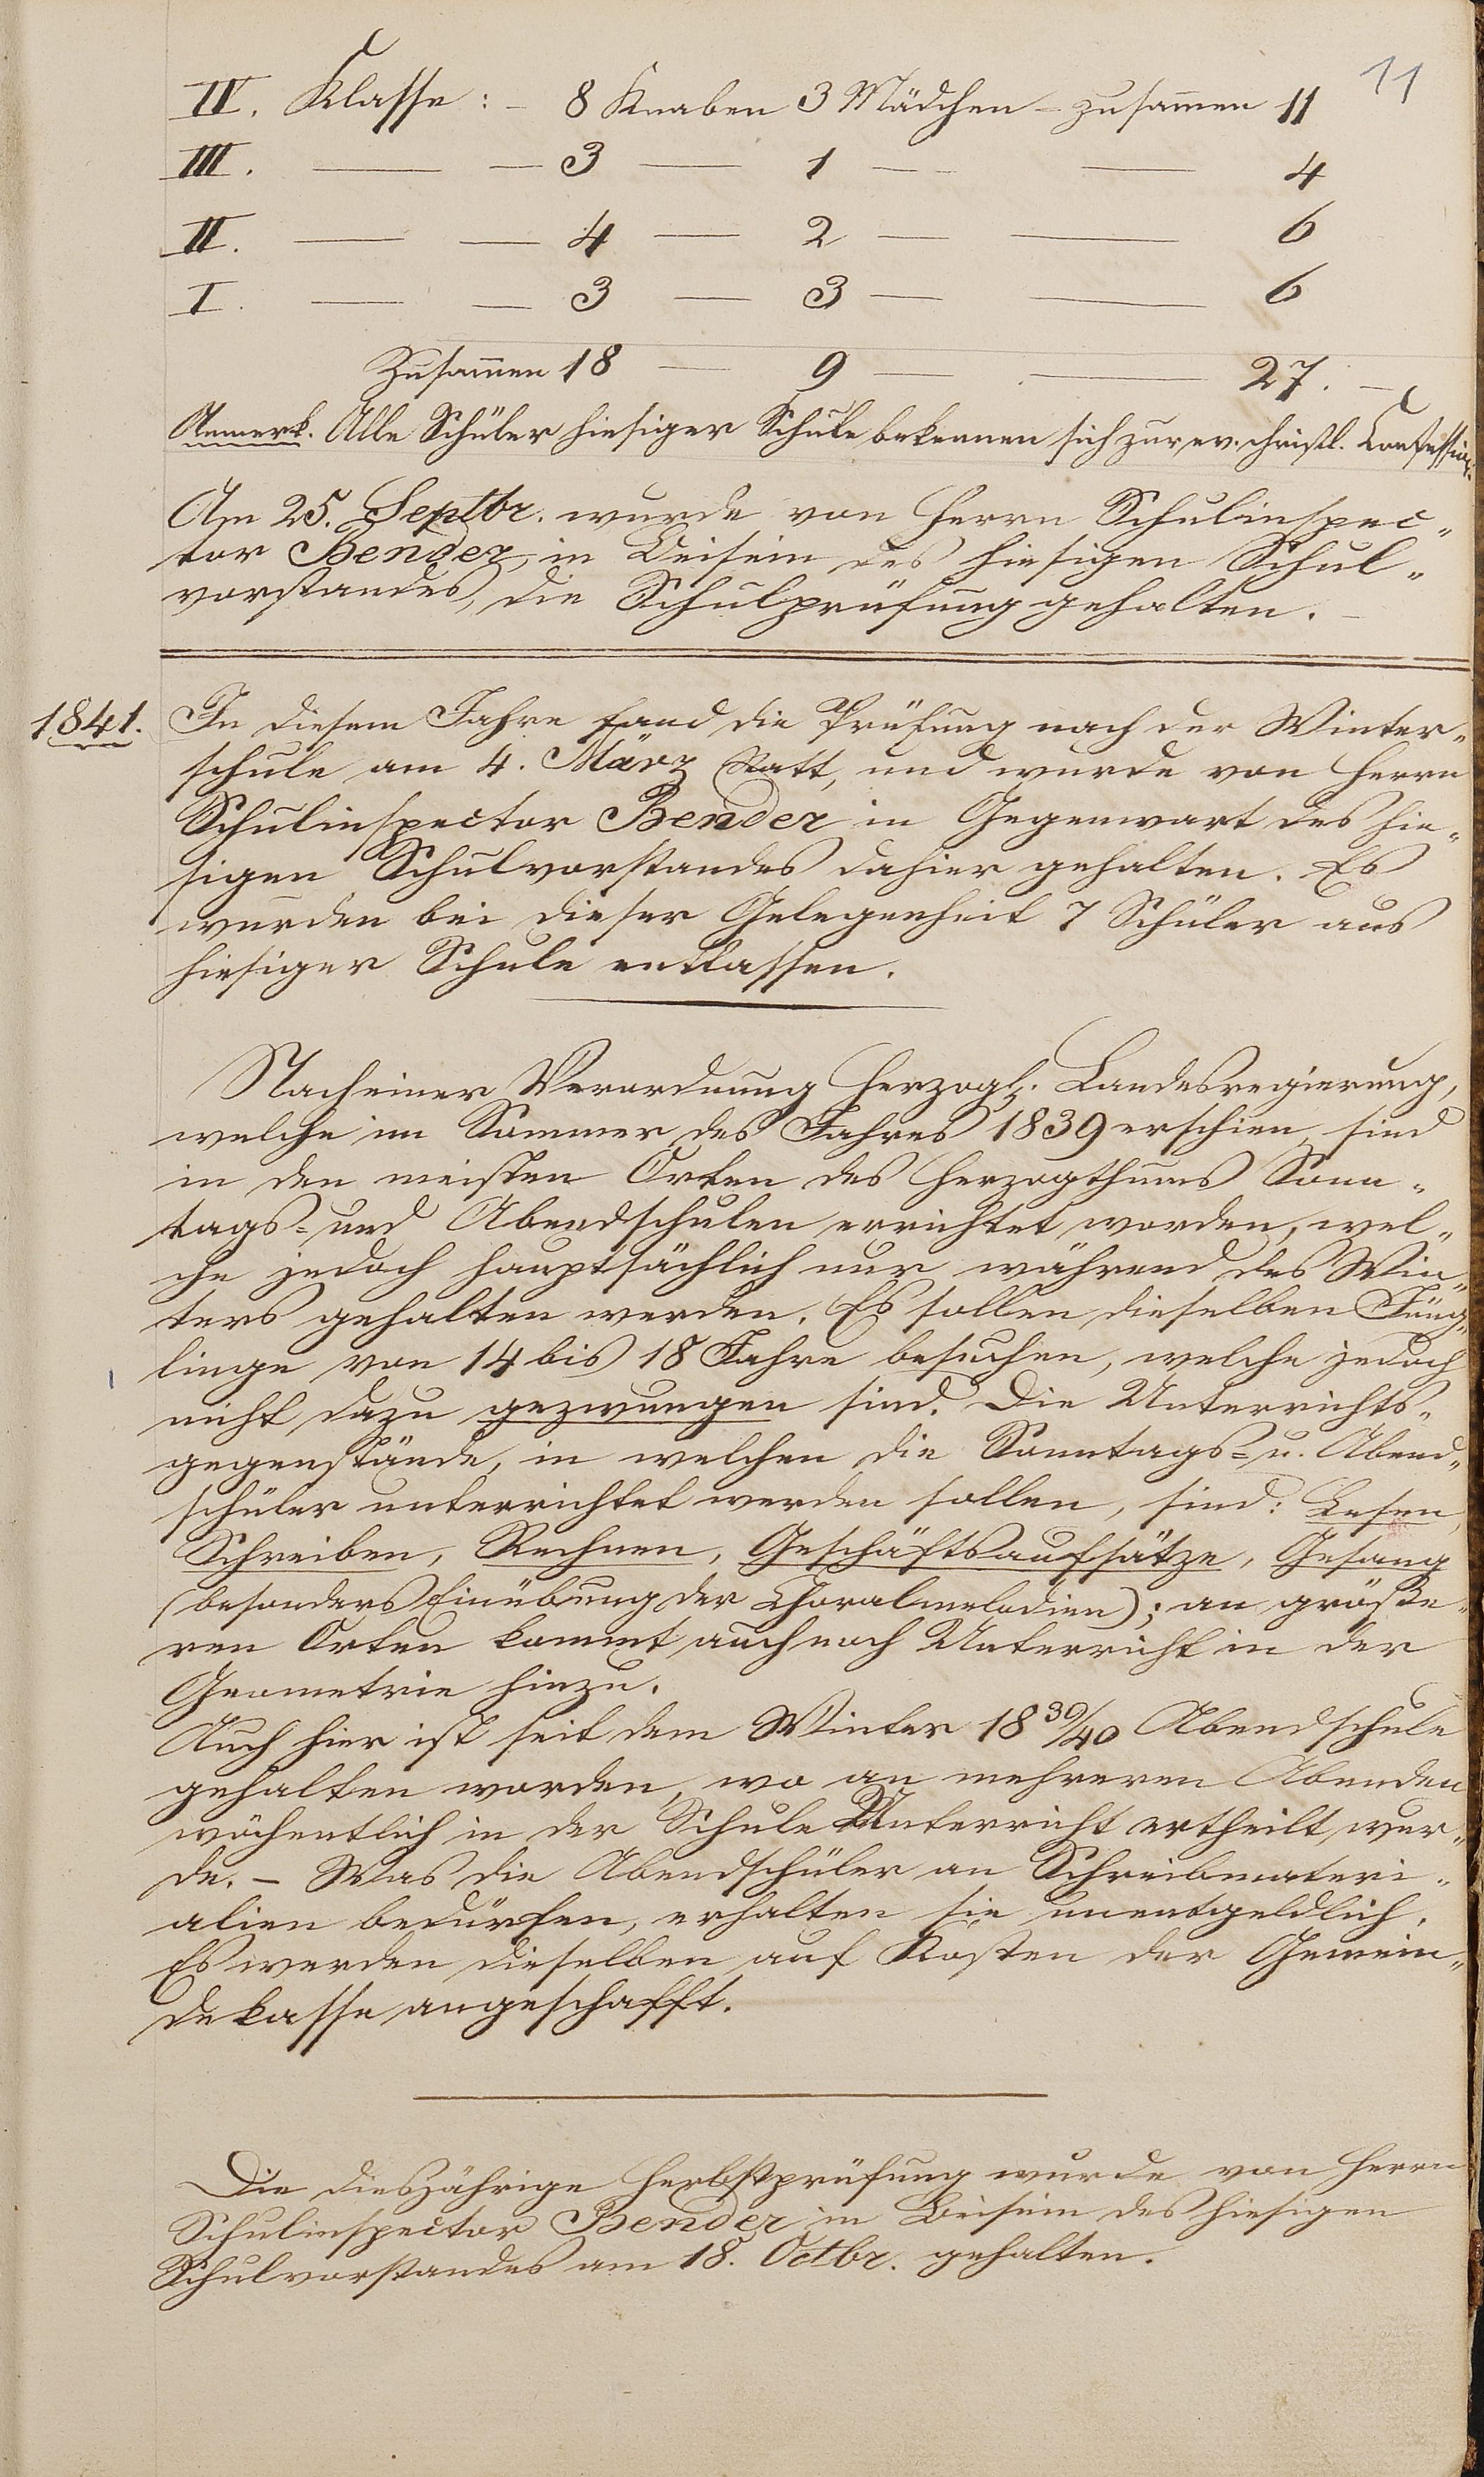 11
IV. Klasse: – 8 Knaben 3 Mädchen – zusam̄en 11
III. — — 3 — 1 — — 4
II. — — 4 — 2 — — 6
I. — — 3 — 3 — — 6
Zusam̄en 18 — 9 — — 27. –
Anmerk. Alle Schüler hiesiger Schule bekennen sich zur ev. christl. Confession.
Am 25. Septbr. wurde von Herrn Schulinspec„
tor Bender, in Beisein des hiesigen Schul„
vorstandes, die Schulprüfung gehalten. –
1841. In diesem Jahre fand die Prüfung nach der Winter„
schule am 4. März Statt, und wurde von Herrn
Schulinspector Bender in Gegenwart des hie„
sigen Schulvorstandes dahier gehalten. Es
wurden bei dieser Gelegenheit 7 Schüler aus
hiesiger Schule entlassen.
Nach einer Verordnung Herzogl. Landesregierung,
welche im Sommer des Jahres 1839 erschien, sind
in den meisten Orten des Herzogthums Sonn„
tags- und Abendschulen errichtet worden, wel„
che jedoch hauptsächlich nur während des Win„
ters gehalten werden. Es sollen dieselben Jüng„
linge von 14 bis 18 Jahre besuchen, welche jedoch
nicht dazu gezwungen sind. Die Unterrichts„
gegenstände, in welchen die Sonntags- u. Abend„
schüler unterrichtet werden sollen, sind: Lesen,
Schreiben, Rechnen, Geschäftsaufsätze, Gesang
(besonders Einübung der Choralmelodien); an größe„
ren Orten kommt auch noch Unterricht in der
Geometrie hinzu.
Auch hier ist seit dem Winter 1839/40 Abendschule
gehalten worden, wo an mehreren Abenden
wöchentlich in der Schule Unterricht ertheilt wur„
de. – Was die Abendschüler an Schreibmateri„
alien bedürfen, erhalten sie unentgeldlich.
Es werden dieselben auf Kosten der Gemein„
dekasse angeschafft.
Die diesjährige Herbstprüfung wurde von Herrn
Schulinspector Bender in Beisein des hiesigen
Schulvorstandes am 18. Octbr. gehalten.